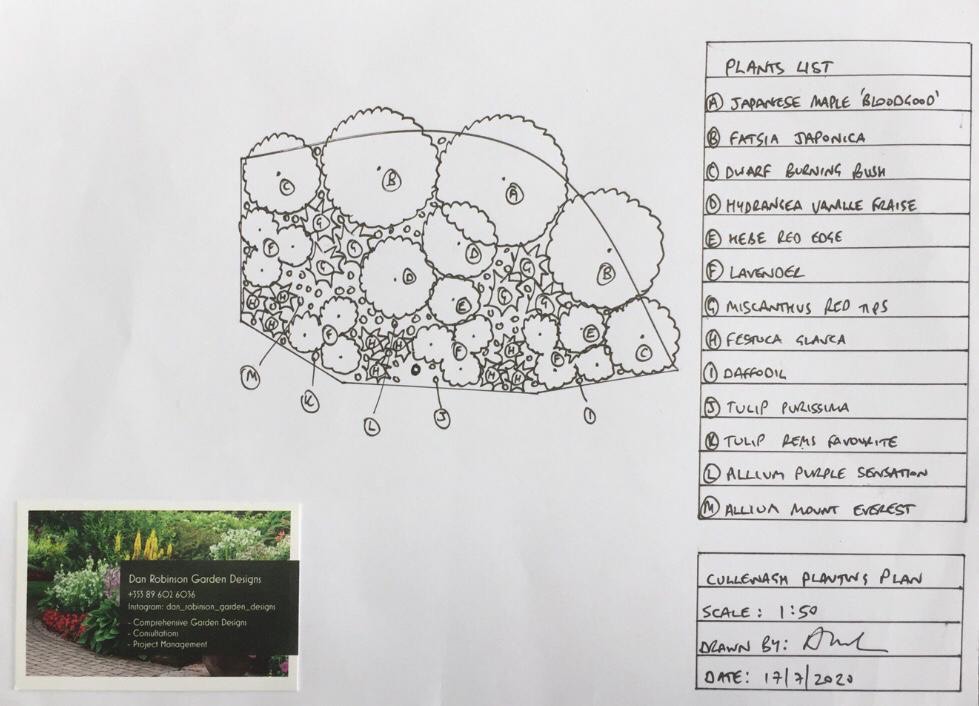 PLANTS LIST
A JAPANESE MAPLE 'BLOODGOOD'
B FATSIA JAPONICA
C DWARF BURNING BUSH
D HYDRANGEA VANILLE FRAISE
E HEBE RED EDGE
F LAVENDER
G MISCANTHUS RED TIPS
H FESTUCA GLAUCA
I DAFFODIL
J TULIP PURISSIMA
K TULIP REMS FAVOURITE
L ALLIUM PURPLE SENSATION
M ALLIUM MOUNT EVEREST
C B A
G G
F D
G G B
D
H H G G
E
H F E
H H H C
F F
H H H
M K L J I
CULLENAGH PLANTING PLAN
SCALE: 1:50
DRAWN BY:
DATE: 17/7/2020
Dan Robinson Garden Designs
+353 89 602 6036
Instagram: dan_robinson_garden_designs
- Comprehensive Garden Designs
- Consultations
- Project Management